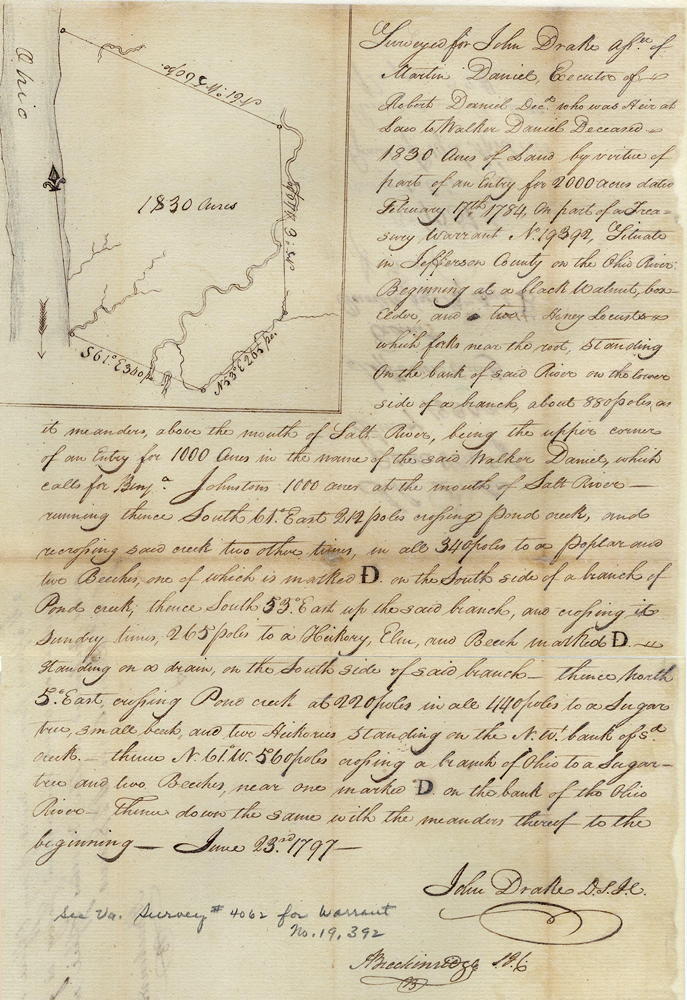 Ohio
N 61° W 560 po.
1830 Acres
S 61° E 340 po.
N 53° E 265 po.
Surveyed for John Drake assee. of
Martin Daniel, Executor of
Robert Daniel Decd. who was Heir at
Law to Walker Daniel Deceased
1830 Acres of Land by virtue of
part of an Entry for 2000 acres dated
February 17th 1784, On part of a Trea=
sury Warrant No. 19392, Situate
in Jefferson County on the Ohio River
Beginning at a black Walnut, box
Elder, and two Honey Locusts
which forks near the root, standing
On the bank of said River on the lower
side of a branch, about 880 poles, as
it meanders, above the mouth of Salt River, being the upper corner
of an Entry for 1000 Acres in the name of the said Walker Daniel, which
calls for Benja. Johnstons 1000 acres at the mouth of Salt River —
running thence South 61° East 212 poles crossing Pond creek, and
recrossing said creek two other times, in all 340 poles to a poplar and
two Beeches, one of which is marked D. on the South side of a branch of
Pond creek, thence South 53° East up the said branch, and crossing it
Sundry times, 265 poles to a Hickory, Elm, and Beech marked D.
standing on a drain, on the South side of said branch — thence North
5° East, crossing Pond creek at 220 poles in all 440 poles to a Sugar
tree, small beech, and two Hickories standing on the N. Wt. bank of sd.
creek. — thence N. 61° W. 560 poles crossing a branch of Ohio to a Sugar-
tree and two Beeches, near one marked D on the bank of the Ohio
River — Thence down the same with the meanders thereof to the
beginning — June 23rd 1797 —
John Drake D.S.J.C.
See Va. Survey # 4062 for Warrant
No. 19,392
ABreckinridge